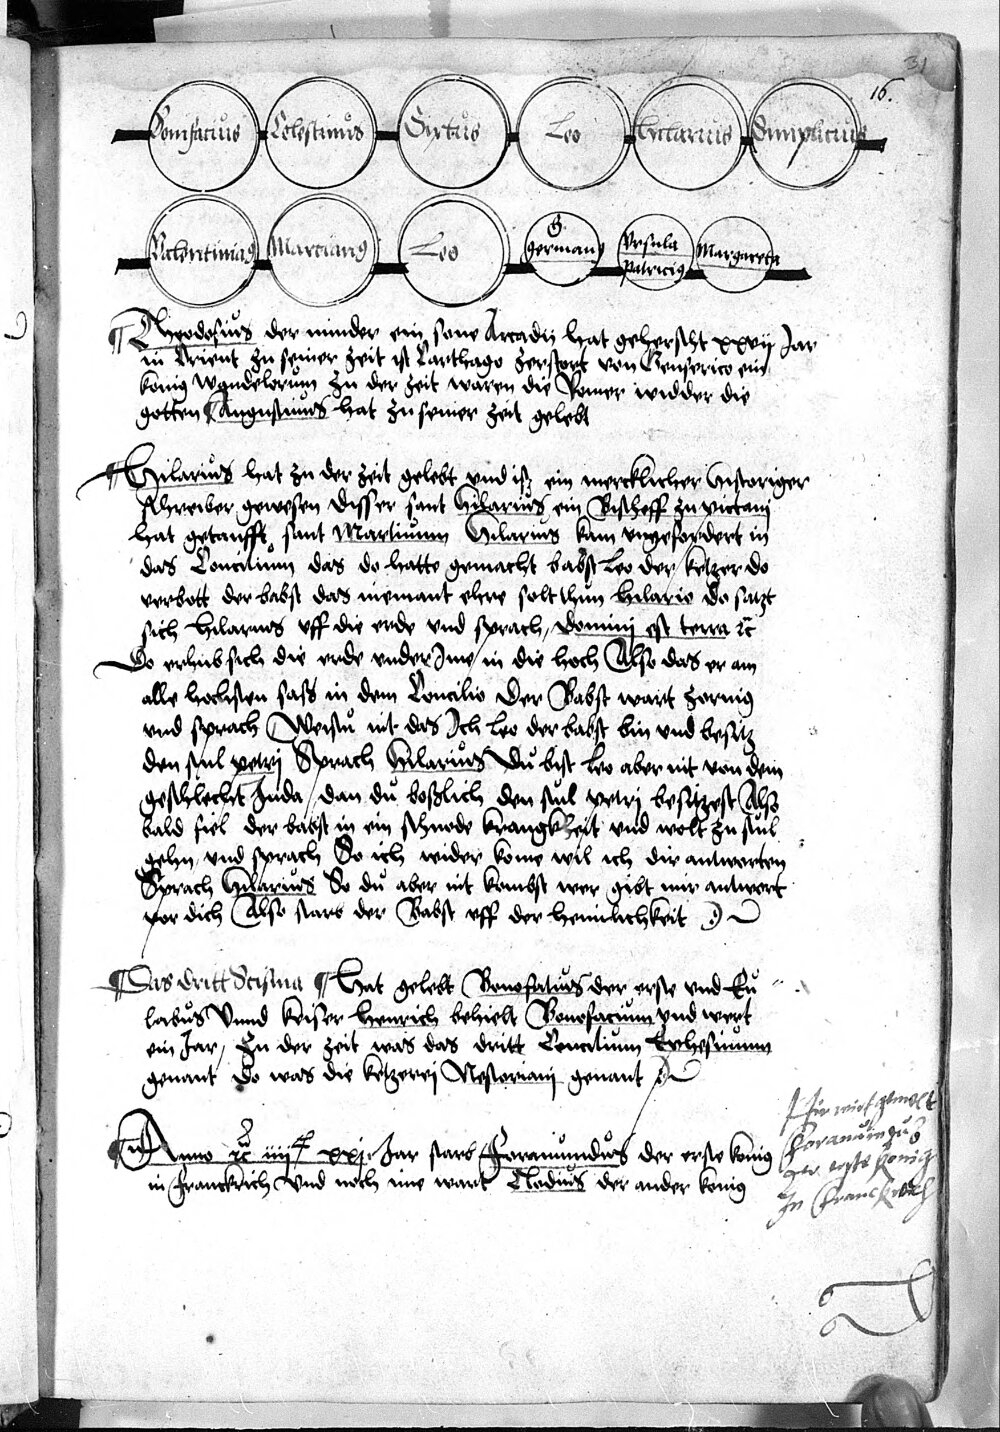 31
16.
Bonifacius Celestinus Sixtus Leo Hilarius Simplicius
Valentinian9 Marcian9 Leo S. German9 Vrsula Patrici9 Margareta
¶ Theodosius der minder ein sone Arcadij hat geherscht xxvij Jar
in Orient zu seiner zeit ist Carthago zerstort von Genserico ein
konig Wandelorum zu der zeit waren die Romer widder die
gotten ¶ Augustinus hat zu seiner zeit gelebt
¶ Hilarius hat zu der zeit gelebt vnd ist ein mercklicher Historiger
schreiber gewesen disser sant Hilarius ein Bischoff zu pictauj
hat getaufft sant Martinum Hilarius kam vngefordert in
das Concilium das do hatte gemacht babst Leo der ketzer do
verbott der babst das niemant ehre solt thun Hilario do satzt
sich Hilarius vff die erde vnd sprach, Domini est terra ꝛc
Do erhub sich die erde vnder Ime in die hoch Also das er am
alle hochsten sass in dem Concilio Der Babst wart zornig
vnd sprach Weistu nit das Ich Leo der babst bin vnd besitz
den stul petrj Sprach Hilarius Du bist Leo aber nit von dem
geschlecht Juda, dan du boßlich den stul petrj besitzest Also
bald fiel der babst in ein schnode kranckheit vnd wolt zu stul
gehn vnd sprach So ich wider kome wil ich dir antworten
Sprach Hilarius So du aber nit kombst wer gibt mir antwort
vor dich Also starb der Babst vff der heimlichkeit
¶ Das dritt Scisma ¶ Hat gelebt Bonofatius der erste vnd Eu
labius Vnnd keiser Henrich behielt Bonofacium vnd wert
ein Jar, In der zeit was das dritt Concilium Ephesinum
genant Do was die ketzerej Nestorianj genant
¶ Anno ꝛc iiijC xxj Jar starb Foramundus der erste konig
in Franckrich Vnd noch ime wart Clodius der ander konig
Hir wirt gemelt
Foramundus
der erste konig
In Franckrich